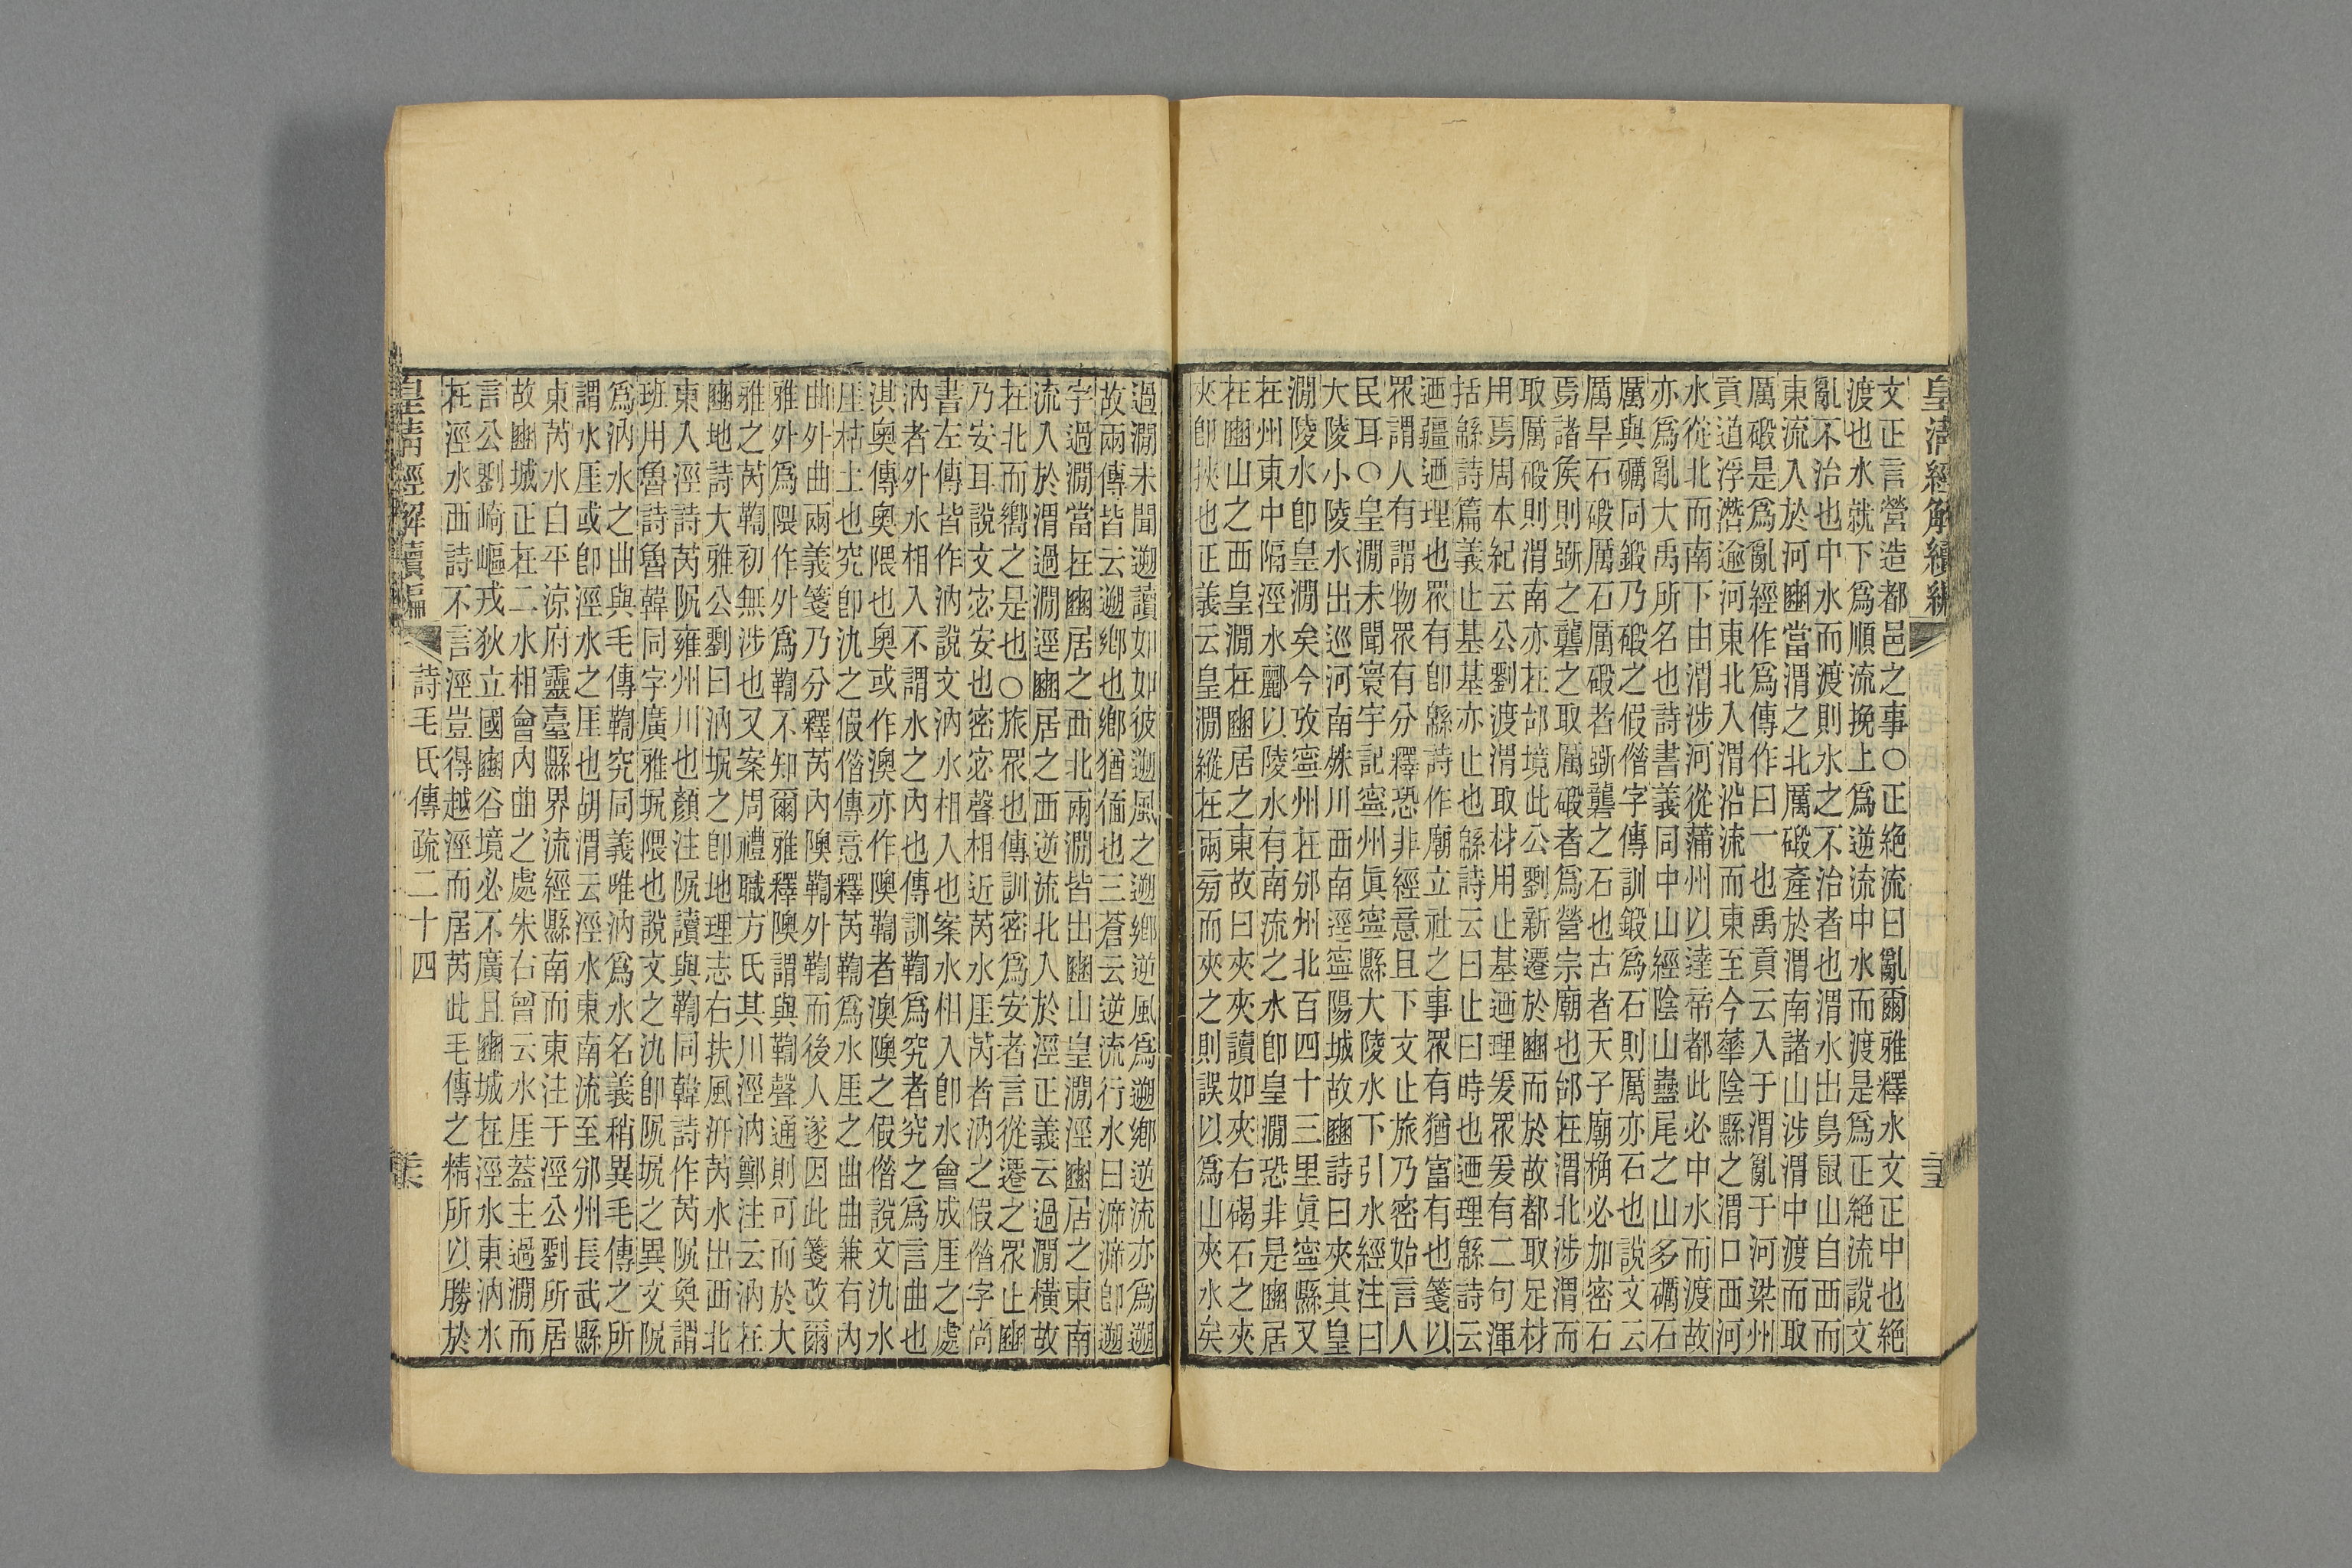 皇清經解續編
文正言營造都邑之事○正絶流曰亂爾雅釋水文正中也絶
渡也水就下爲順流挽上爲逆流中水而渡是爲正絶流說文
亂不治也中水而渡則水之不治者也渭水出鳥鼠山自西而
東流入於河豳當渭之北厲碫產於渭南諸山涉渭中渡而取
厲碫是爲亂經作爲傳作曰一也禹貢云入于渭亂于河梁州
貢道浮灊逾河東北入渭沿流而東至今華陰縣之渭口西河
水從北而南下由渭涉河從蒲州以達帝都此必中水而渡故
亦爲亂大禹所名也詩書義同中山經陰山蠱尾之山多礪石
厲與礪同鍛乃碫之假偺字傳訓鍛爲石則厲亦石也說文云
厲旱石碫厲石厲碫者斲礱之石也古者天子廟桷必加密石
焉諸矦則斲之礱之取厲碫者爲營宗廟也邰在渭北涉渭而
取厲碫則渭南亦在邰境此公劉新遷於豳而於故都取足材
用焉周本紀云公劉渡渭取材用止基迺理爰眾爰有二句渾
括緜詩篇義止基基亦止也緜詩云曰止曰時也迺理緜詩云
迺疆迺理也眾有卽緜詩作廟立社之事眾有猶富有也箋以
眾謂人有謂物眾有分釋恐非經意且下文止旅乃密始言人
民耳○皇澗未聞寰宇記寧州眞寧縣大陵水下引水經注曰
大陵小陵水出巡河南姝川西南逕寧陽城故豳詩曰夾其皇
澗陵水卽皇澗矣今攷寧州在邠州北百四十三里眞寧縣又
在州東中隔涇水酈以陵水有南流之水卽皇澗恐非是豳居
在豳山之西皇澗在豳居之東故曰夾夾讀如夾右碣石之夾
夾卽挾也正義云皇澗縱在兩㫄而夾之則誤以爲山夾水矣
過澗未聞遡讀如如彼遡風之遡鄉逆風爲遡鄉逆流亦爲遡
故兩傳皆云遡鄉也鄉猶偭也三蒼云逆流行水曰㴑㴑卽遡
字過澗當在豳居之西北兩澗皆出豳山皇澗涇豳居之東南
流入於渭過澗逕豳居之西逆流北入於涇正義云過澗橫故
在北而嚮之是也○旅眾也傳訓密爲安者言從遷之眾止豳
乃安耳說文宓安也密宓聲相近芮水厓芮者汭之假偺字尚
書左傳皆作汭說文汭水相入也案水相入卽水會成厓之處
汭者外水相入不謂水之內也傳訓鞫爲究者究之爲言曲也
淇奧傳奧隈也奧或作澳亦作隩鞫者澳隩之假偺說文氿水
厓枯土也究卽氿之假偺傳意釋芮鞫爲水厓之曲曲兼有內
曲外曲兩義箋乃分釋芮內隩鞫外鞫而後人遂因此箋改爾
雅外爲隈作外爲鞫不知爾雅釋隩謂與鞫聲通則可而於大
雅之芮鞫初無涉也又案周禮職方氏其川涇汭鄭注云汭在
豳地詩大雅公劉曰汭坭之卽地理志右扶風汧芮水出西北
東入涇詩芮阮雍州川也顏注阮讀與鞫同韓詩作芮阮奐謂
班用魯詩魯韓同字廣雅坭隈也說文之氿卽阮坭之異文阮
爲汭水之曲與毛傳鞫究同義唯汭爲水名義稍異毛傳之所
謂水厓或卽涇水之厓也胡渭云涇水東南流至邠州長武縣
東芮水自平涼府靈臺縣界流經縣南而東注于涇公劉所居
故豳城正在二水相會內曲之處朱右曾云水厓蓋主過澗而
言公劉崎嶇戎狄立國豳谷境必不廣且豳城在涇水東汭水
在涇水西詩不言涇豈得越涇而居芮此毛傳之精所以勝於
皇清經解續編
詩毛氏傳疏二十四